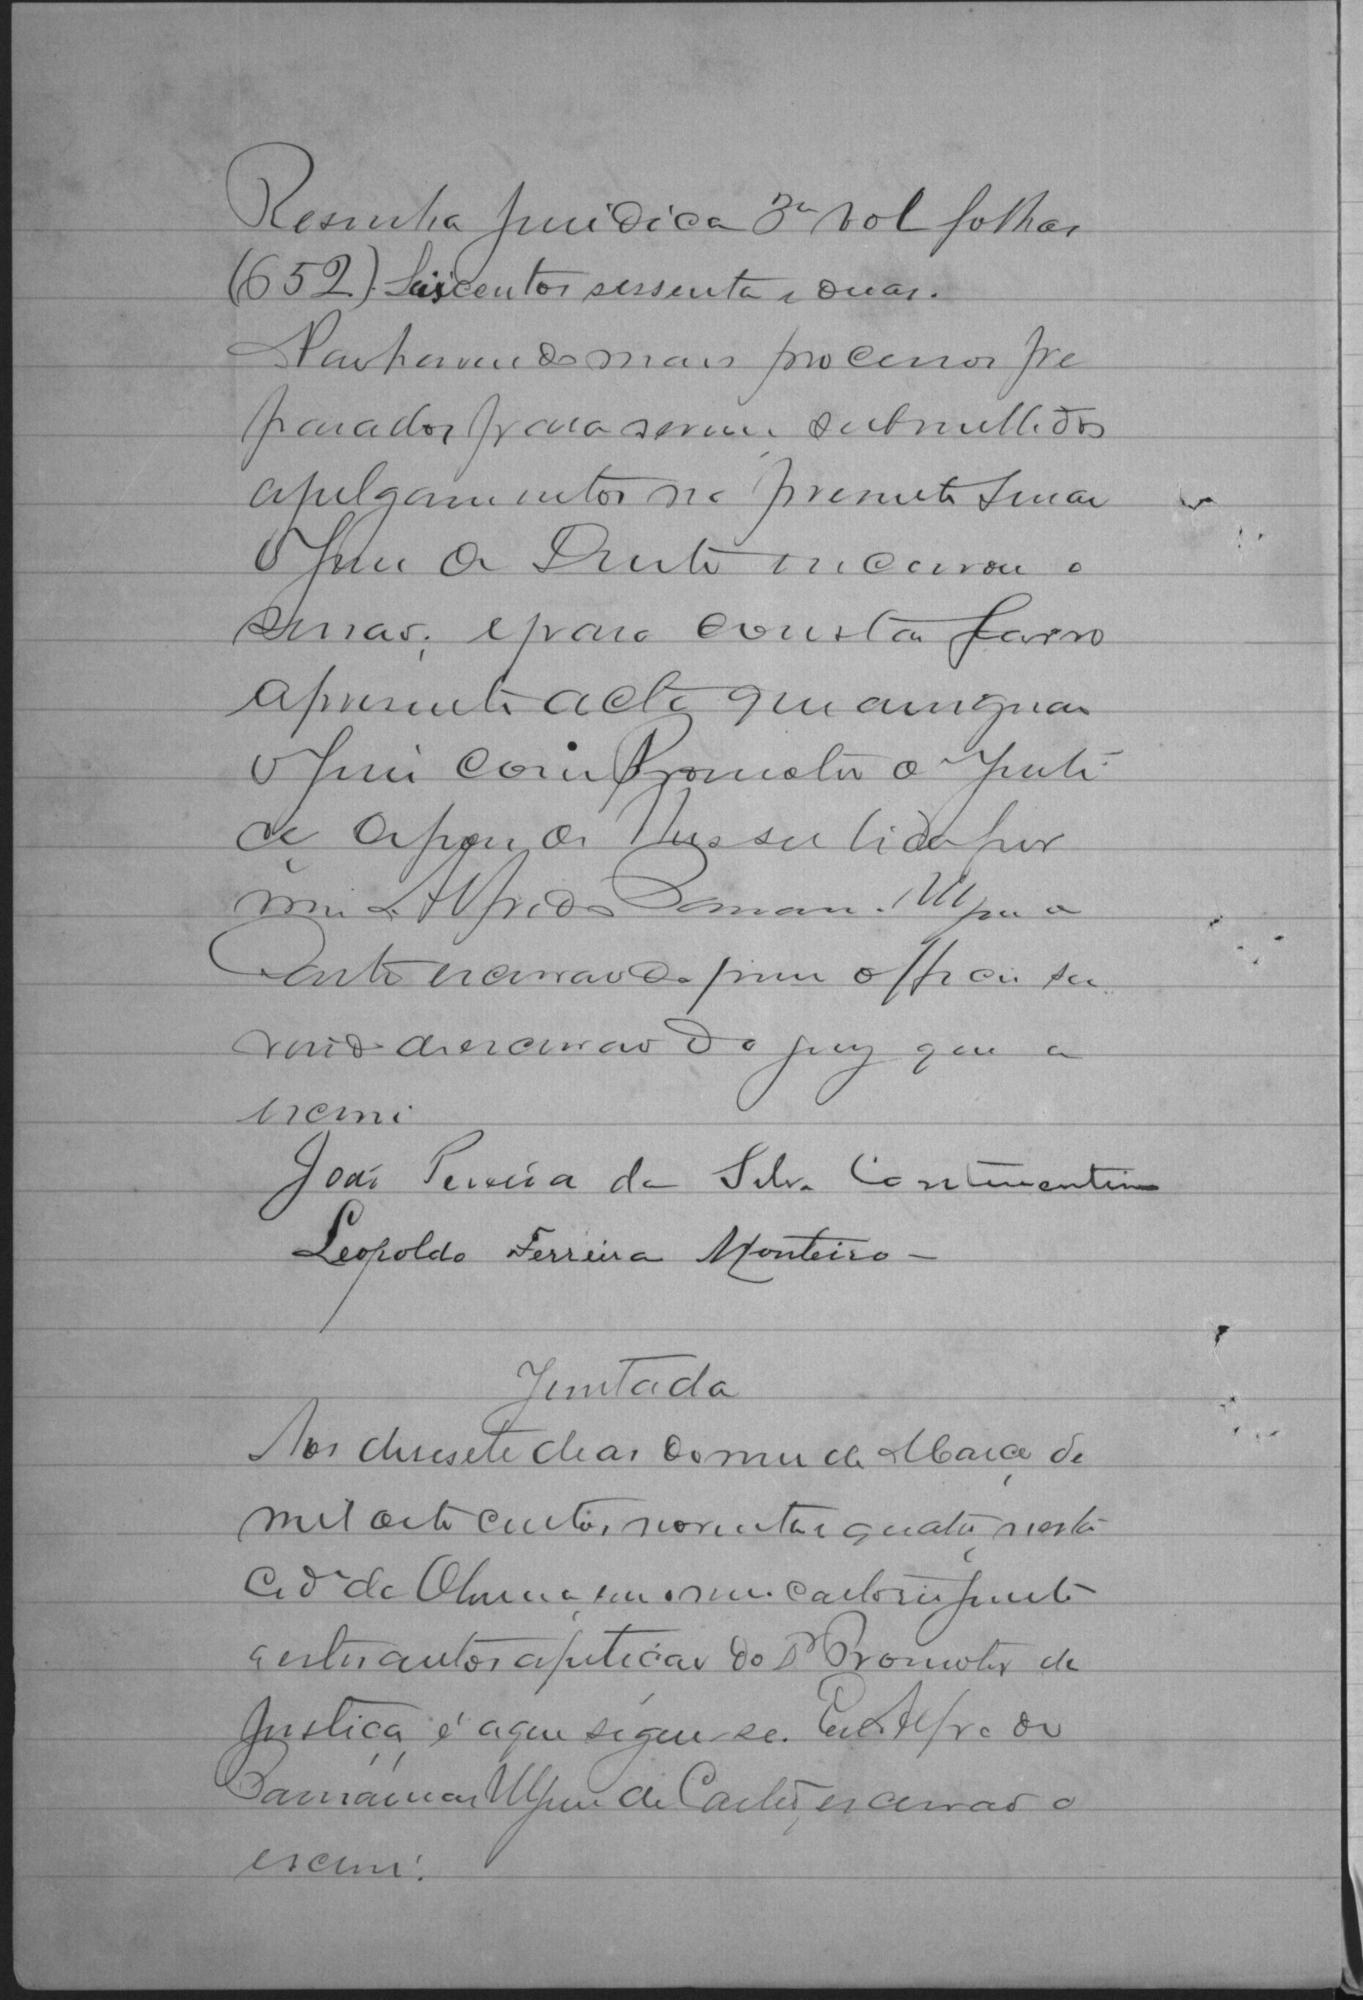 Resenha Juridica 3º vol folhas
(652) Seiscentos sessenta e duas.
Não havendo mais processos pre
parados para serem submettidos
a julgamentos na presente sessão
o Juiz de Direito encerrou a
sessão; e para constar lavro
a presente acta que assignão
o Juiz com Promotor de Justi
ça depois de lhes ser lida por
mim Alfredo
escrivão do jury officio ser
vindo de escrivão do jury que a
escrevi
João Pereira da Silva Continentino
Leopoldo Ferreira Monteiro
Juntada
Aos desesete dias do mez de Março de
mil oito centos noventa e quatro nesta
Cidᵉ de Olinda, em o meu cartorio junto
a estes autos a petição do Dr Promotor de
Justiça é a que segue-se. Eu Alfredo
de Castro, escrivão o
escrevi.